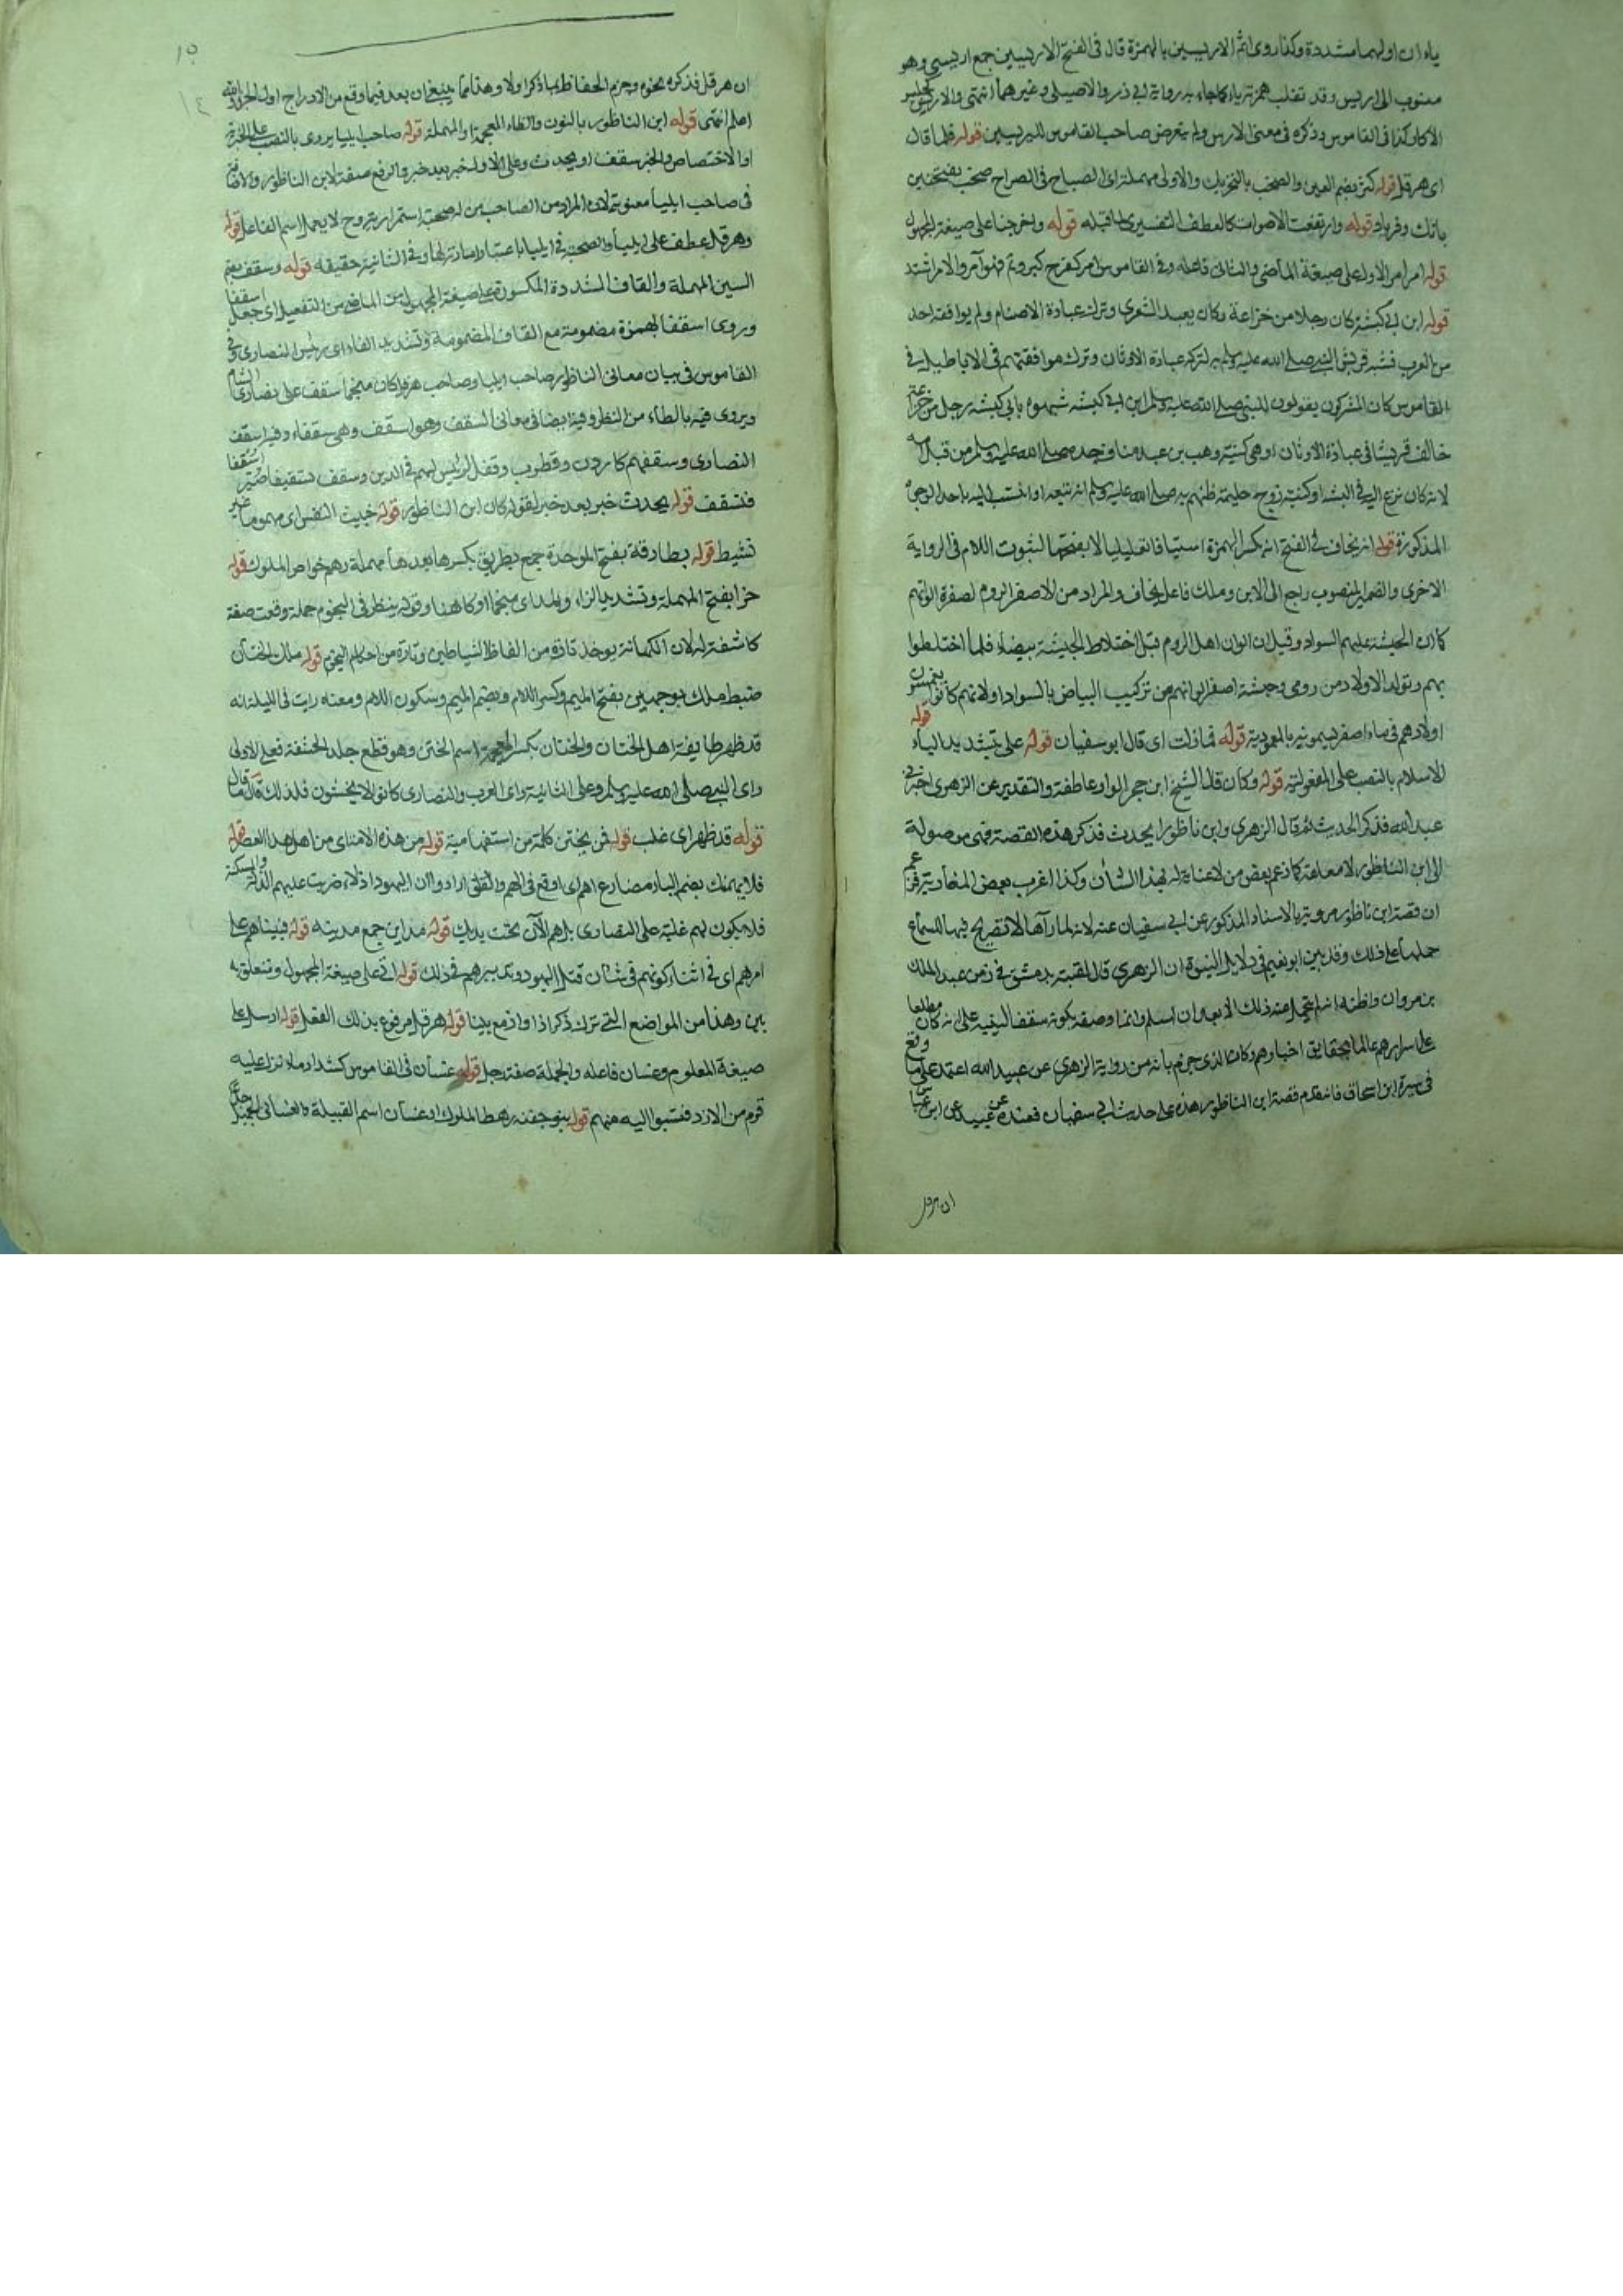 ياءان اولهما مشددة وكذا روى اثم الاريسيين بالهمزة قال فى الفتح الاريسيين جمع اريسى وهو
منسوب الى اريس وقد تقلب همزته ياء كما جاء به رواية ابى ذر والاصيلى وغيرهما انتهى والاريس كجليس
الاكار كذا فى القاموس وذكره فى معنى الارس ولم يتعرض صاحب القاموس لليريسين قوله فلما قال
اى هرقل قوله كثر بضم العين والصخب بالتحريك والاولى مهملة الصياح فى الصراح صخب بفتحتين
بانك وفرياد قوله وارتفعت الاصوات كالعطف التفسيرى لما قبله قوله واخرجنا على صيغة المجهول
قوله امر امر الاول على صيغة الماضى والثانى فاعله وفى القاموس امر كفرح كبر وتم فهو آمر والامر اشتد
قوله ابن ابى كبشة كان رجلا من خزاعة وكان يعبد الشعرى وترك عبادة الاصنام ولم يوافقه احد
من العرب فشبه قريش النبى صلى الله عليه وسلم به لتركه عبادة الاوثان وترك موافقتهم فى الاباطيل فى
القاموس كان المشركون يقولون للنبى صلى الله عليه وسلم ابن ابى كبشة شبهوه بابى كبشة رجل من خزاعة
خالف قريشا فى عبادة الاوثان او هى كنية وهب بن عبد مناف جده صلى الله عليه وسلم من قبل امه
لانه كان نزع اليه فى الشبه او كنية زوج حليمة ظنهم به صلى الله عليه وسلم انه تتبعه او انتسب اليه باحد الوجوه
المذكورة قوله انه يخافه فى الفتح انه بكسر الهمزة استينافا تعليليا لا بفتحها لثبوت اللام فى الرواية
الاخرى والضمير المنصوب راجع الى الابن وملك فاعل يخاف والمراد من الاصفر الروم لصفرة الوانهم
كما ان الحبشة عليهم السواد وقيل ان الوان اهل الروم قبل اختلاط الحبشة بيضاء فلما اختلطوا
بهم وتولد الاولاد من رومى وحبشة اصفر الوانهم من تركيب البياض بالسواد او لانهم كانوا يغمسون
اولادهم فى ماء اصفر يسمونه بالمعمودية قوله فمازلت اى قال ابو سفيان قوله على بتشديد الياء قوله
الاسلام بالنصب على المفعولية قوله وكان قال الشيخ ابن حجر الواو عاطفة والتقدير عن الزهرى اخبرنى
عبد الله فذكر الحديث ثم قال الزهرى وابن ناظورا يحدث فذكر هذه القصة فهى موصولة
الى ابن الناظور لا معلقة كما زعم بعض من لا عناية له بهذا الشان وكذا اغرب بعض المغاربة فزعم
ان قصة ابن ناظور مروية بالاسناد المذكور عن ابى سفيان عنه لانه لما رآها لا تصريح فيها بالسماع
حملها على ذلك وقد بين ابو نعيم فى دلايل النبوة ان الزهرى قال لقيته بدمشق فى زمن عبد الملك
بن مروان واظنه انه لم يتحمل عنه ذلك الا بعد ان اسلم وانما وصفه بكونه سقفا لينبه على انه كان مطلعا
على اسرارهم عالما بحقايق اخبارهم وكان الذى جزم بانه من رواية الزهرى عن عبيد الله اعتمد على ما وقع
فى سيرة ابن اسحاق فانه قدم قصة ابن الناظور هذه على حديث ابى سفيان فعنده عن عبيد الله عن ابن عباس
ان هرقل
١٥
١٤
ان هرقل فذكره بنحوه وجزم الحفاظ بما ذكر اولا وهذا مما ينبغى ان يعد فيما وقع من الادراج اول الخبر والله
اعلم انتهى قوله ابن الناظور بالنون والظاء المعجمة او المهملة قوله صاحب ايليا يروى بالنصب على الخبرية
او الاختصاص والخبر سقف او يحدث وعلى الاول خبر بعد خبر والرفع صفة لابن الناظور والاضافة
فى صاحب ايلياء معنوية لان المراد من الصاحب من له صحبة استمرارية وح لا يعمل اسم الفاعل قوله
وهرقل عطف على ايلياء والصحبة فى ايليا باعتبار امارته لها وفى الثانية حقيقه قوله وسقف بضم
السين المهملة والقاف المشددة المكسورة على صيغة المجهول من الماضى من التفعيل اى جعل اسقفا
وروى اسقفا بهمزة مضمومة مع القاف المضمومة وتشديد الفاء اى رئيس النصارى وفى
القاموس فى بيان معانى الناظور صاحب ايليا وصاحب هرقل كان منجما اسقف على نصارى الشام
ويروى فيه بالطاء من النظر وفيه ايضا فى معانى السقف وهو اسقف وهى سقفاء وفيه اسقف
النصارى وسقفهم كاردن وقطرب وقفل لرئيس لهم فى الدين وسقف تسقيفا صير اسقفا
فتسقف قوله يحدث خبر بعد خبر لقوله كان ابن الناظور قوله خبيث النفس اى مهموما غير
نشيط قوله بطارقة بفتح الموحدة جمع بطريق بكسرها بعدها مهملة وهم خواص الملوك قوله
حزاء بفتح المهملة وتشديد الزاء وبالمد اى منجما او كاهنا وقوله ينظر فى النجوم جملة وقعت صفة
كاشفة له لان الكهانة يوخذ تارة من الفاظ الشياطين وتارة من احكام النجوم قوله ملك الختان
ضبط ملك بوجهين بفتح الميم وكسر اللام وبضم الميم وسكون اللام ومعناه رايت فى الليلة انه
قد ظهر طايفة اهل الختان والختان بكسر المعجمة اسم الختن وهو قطع جلد الحشفة فعلى الاولى
راى النبى صلى الله عليه وسلم وعلى الثانية راى العرب والنصارى كانوا لا يختتنون فلذلك قال ما قال
قوله قد ظهر اى غلب قوله فمن يختتن كلمة من استفهامية قوله من هذه الامة اى من اهل هذا العصر قوله
فلا يهمنك بضم الياء مضارع اهم اى اوقع فى الهم والقلق ارادوا ان اليهود اذلاء ضربت عليهم الذلة والمسكنة
فلا يكون لهم غلبة على النصارى بل هم الآن تحت يديك قوله مداين جمع مدينه قوله فبيناهم على
امرهم اى فى اثناء كونهم فى شان قتل اليهود وتدبيرهم فى ذلك قوله اتى على صيغة المجهول وتتعلق به
بين وهذا من المواضع التى ترك ذكر اذا واذ مع بينا قوله هرقل مرفوع بذلك الفعل قوله ارسل على
صيغة المعلوم وغسان فاعله والجملة صفة رجل قوله غسان فى القاموس كشداد ماء نزل عليه
قوم من الازد فنسبوا اليه منهم قوله بنو جفنه رهط الملوك او غسان اسم القبيلة والغسانى الجميل جدا